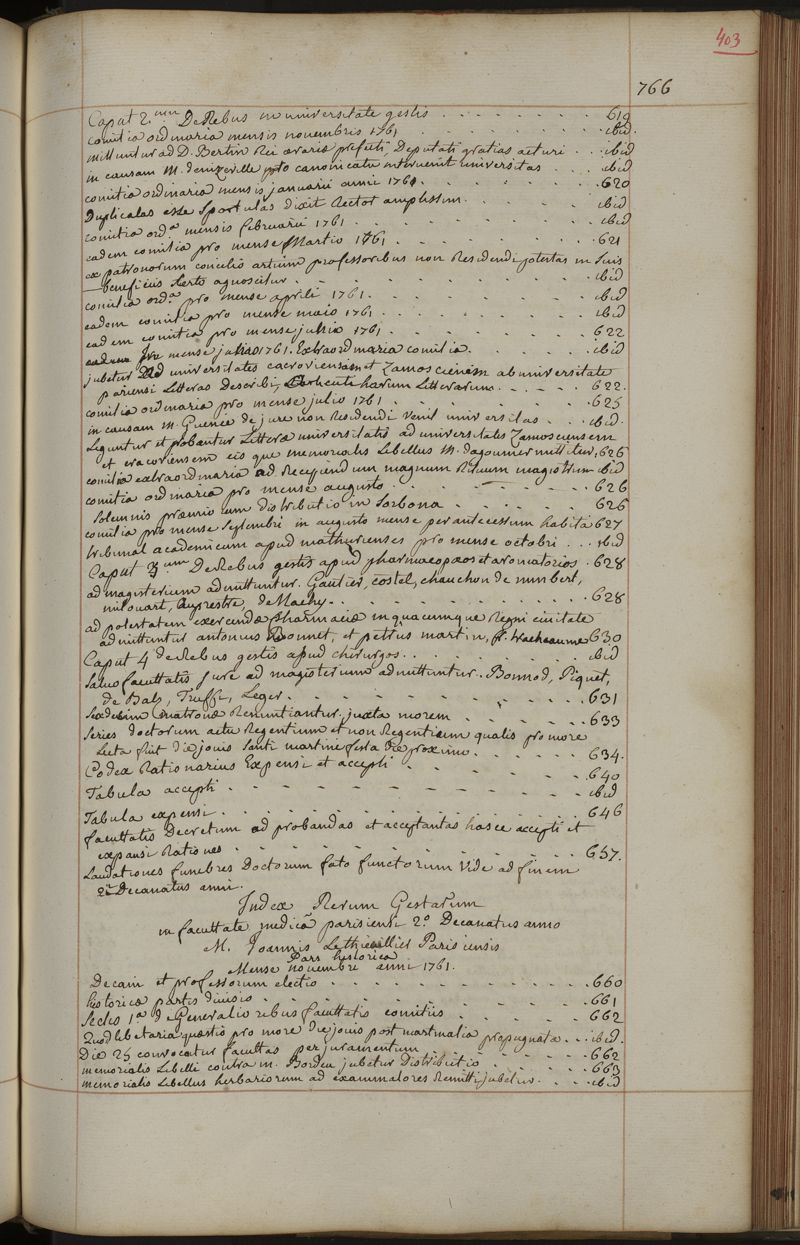 403
766
Caput 2.um De Rebus in universitate gestis . . . . . . . 619
comitia ordinaria mensis novembris 1761 . . . . . . . ibid.
mittuntur ad D. Bertin Rei ærariæ præfecti Deputati gratias acturi . . . ibid
in causam M. denizeville pro canonicatu intervenit universitas . . . ibid
comitia ordinaria mensis januarii anni 1761. . . . . . . 620
Duplicatas esse sportulas dixit Rector amplissim. . . . . . ibid
comitia ord.a mensis februarii 1761 . . . . . . . ibid
eadem comitia pro mense Martio 1761 . . . . . . . 621
ex patronorum concilio artium professoribus non Residendi potestas in suis
beneficiis certo agnoscitur . . . . . . . ibid
comitia ord.a pro mense aprili 1761. . . . . . . ibid
eadem comitia pro mense maio 1761 . . . . . . . ibid
eadem comitia pro mense junio 1761 . . . . . . . 622
pro mense julio 1761. Extraordinaria comitia. . . . . . ibid
jubetur ad universitates cacroviensem et Zamosciensem ab universitate
parisiensi Litteras Describi, harum Litterarum . . . . . 622.
comitia ordinaria pro mense julio 1761 . . . . . . . 625
in causam M. Guenée de jure non Residendi venit universitas . . . ibid.
Leguntur et probantur Litteræ universitatis ad universitates Zamosciensem
et cracoviensem eis que memorialis Libellus M. dagoumer mittitur, 626
comitia extraordinaria ad Recipiendum magnum Rituum magistrum ibid
comitia ordinaria pro mense augusto . . . . . . . 626
solemnis præmiorum distributio in sorbona . . . . . . 626
comitia pro mense septembri in augusto mense per antecessum habita 627
tribunal academicum apud mathurinenses pro mense octobri . . . ibid
Caput 3um De Rebus gestis apud pharmacopæos et aromatarios . 628
ad magisterium admittuntur. Gautier, costel, chauchon de mimbert,
milouart, Duprestre, deMachy. . . . . . . . 628
ad potestatem exercendæ pharmaciæ in quacumque Regni civitate
admittuntur antonius Bonnet, et petrus martin, 630
Caput 4 de Rebus gestis apud chirurgos. . . . . . . ibid
salvo facultatis jure ad magisterium admittuntur. Bonnod, Piquet,
de Balz, Truffi, Leger. . . . . . . . 631
sexdecim matronæ Renuntiantur juxta morem . . . . . . 633
series doctorum actu Regentium et non Regentium qualis pro more
Lecta fuit die jovis santi martini festa die proximo. . . . . . 634.
Codex Rationarius Expensi et accepti . . . . . . . 640
Tabula accepti . . . . . . . ibid
Tabula expensi . . . . . . . 646
facultatis Decretum ad probandas et acceptantas hasce accepti et
expansi Rationes . . . . . . . 657.
Laudationes funebres Doctorum fato functorum vide ad finem
2i Decanatus anni.
Index Rerum Gestarum
in facultate medicâ parisiensi 2.o Decanatus anno
M. Joannis Lethieullier Parisiensis
Pars historica
Mense novembri anni 1761.
Decani et professorum electio . . . . . . . 660
historicæ partis divisio . . . . . . . 661
Sectio 1a de Generalioribus facultatis comitiis . . . . . 662
Quodlibetaria quæstio pro more die jovis post martinalia propugnata . . . ibid.
Die 25 convocatur facultas per juramentum . . . . . . 662
memorialis Libelli contra m. Bordeu jubetur Distributio . . . . . 663
memorialis Libellus herbariorum ad examinatores Remitti jubetur . . . ibid